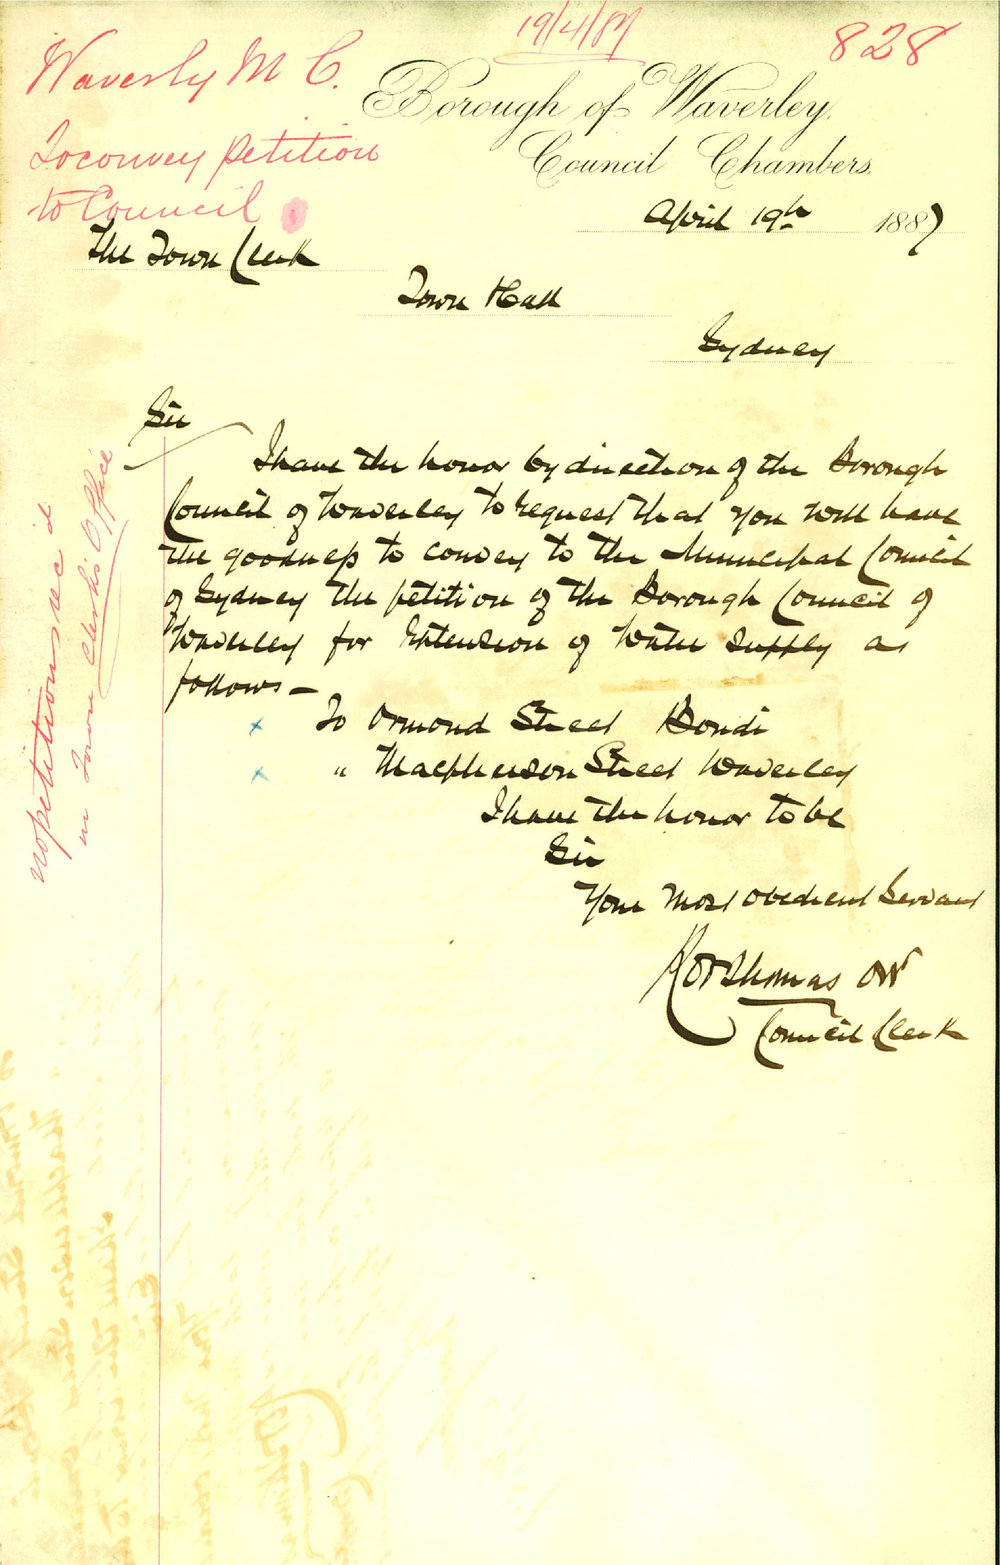 19/4/87
828
Waverly M C.
To convey petition
to Council
Borough of Waverley.
Council Chambers.
April 19th 1887
The Town Clerk
Town Hall
Sydney
Sir
I have the honor by direction of the Borough
Council of Waverley to request that you will have
the goodness to convey to the Municipal Council
of Sydney the petition of the Borough Council of
Waverley for Extension of Water Supply as
follows —
x To Ormond Street Bondi
x " Macpherson Street Waverley
I have the honor to be
Sir
Your Most Obedient Servant
Thomas
Council Clerk
no petitions rec'd
in Town Clerks Office